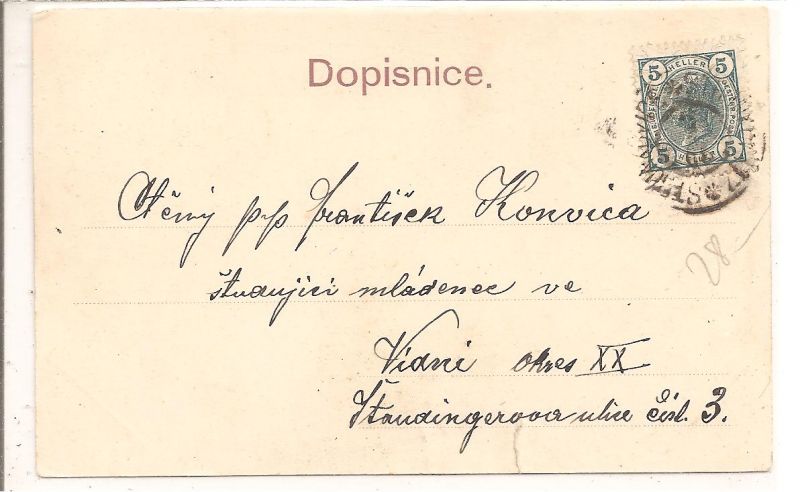 Dopisnice.
5 HELLER 5
5 HELLER 5
28-
Ctěný p.p František Konvica
študující mládenec ve
Vídni okres XX
Štaudingerova ulice čísl. 3.